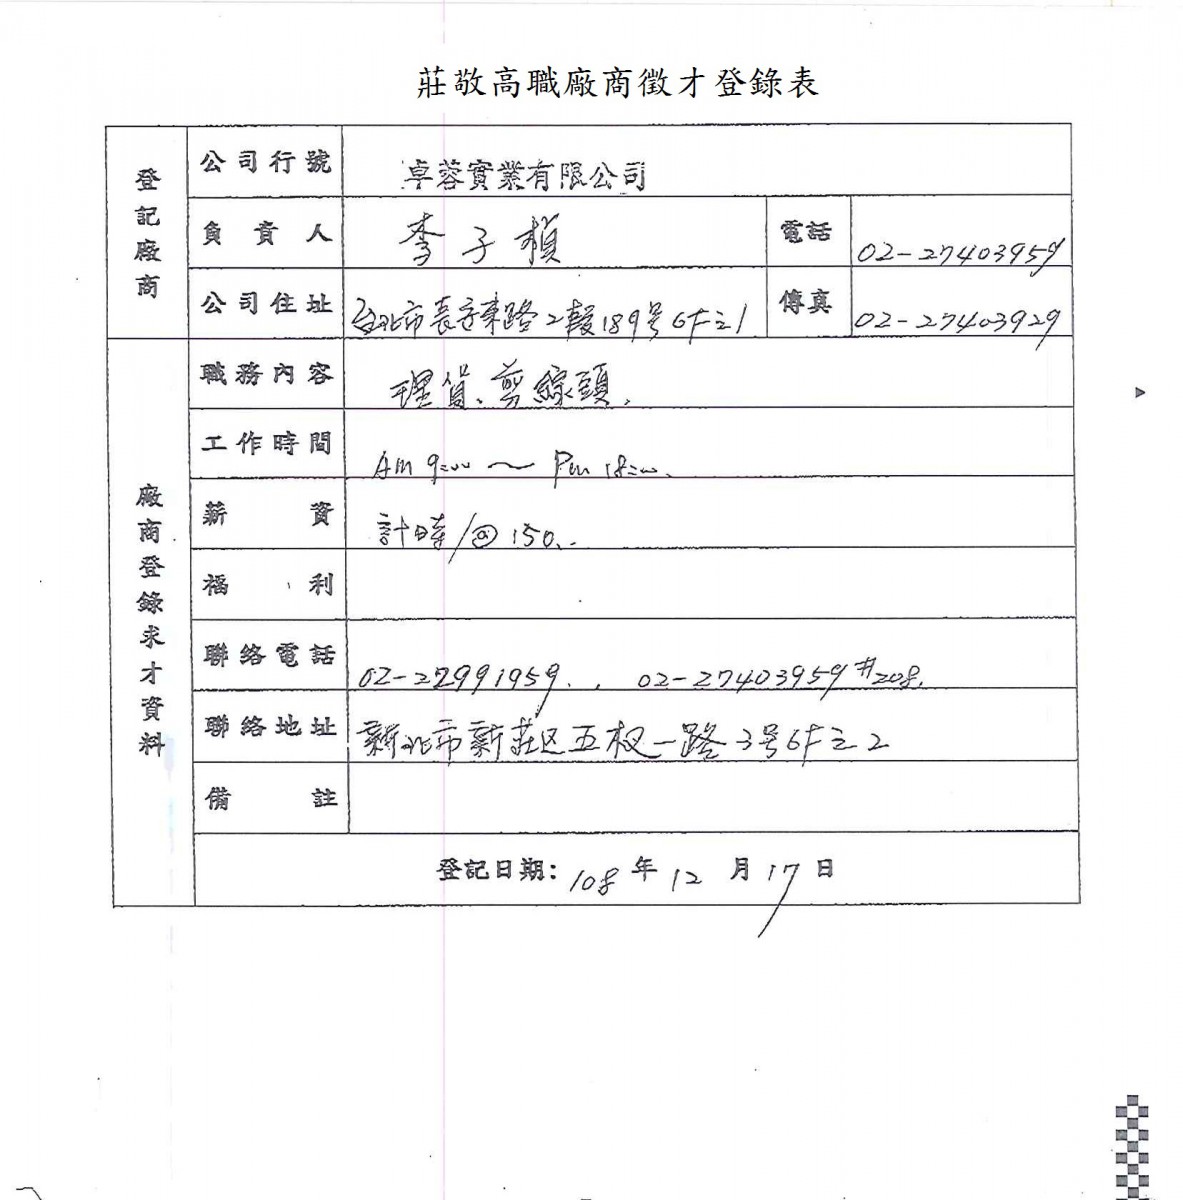 莊敬高職廠商徵才登錄表
登記廠商
公司行號 卓蓉實業有限公司
負責人 李子楨 電話 02-27403959
公司住址 台北市長安東路2段189號6F之1 傳真 02-27403929
廠商登錄求才資料
職務內容 理貨、剪線頭.
工作時間 Am 9:00 ~ Pm 18:00.
薪資 計時/@150..
福利
聯絡電話 02-22991959. . 02-27403959#208.
聯絡地址 新北市新莊区五权一路3号6F之2
備註
登記日期: 108年12月17日